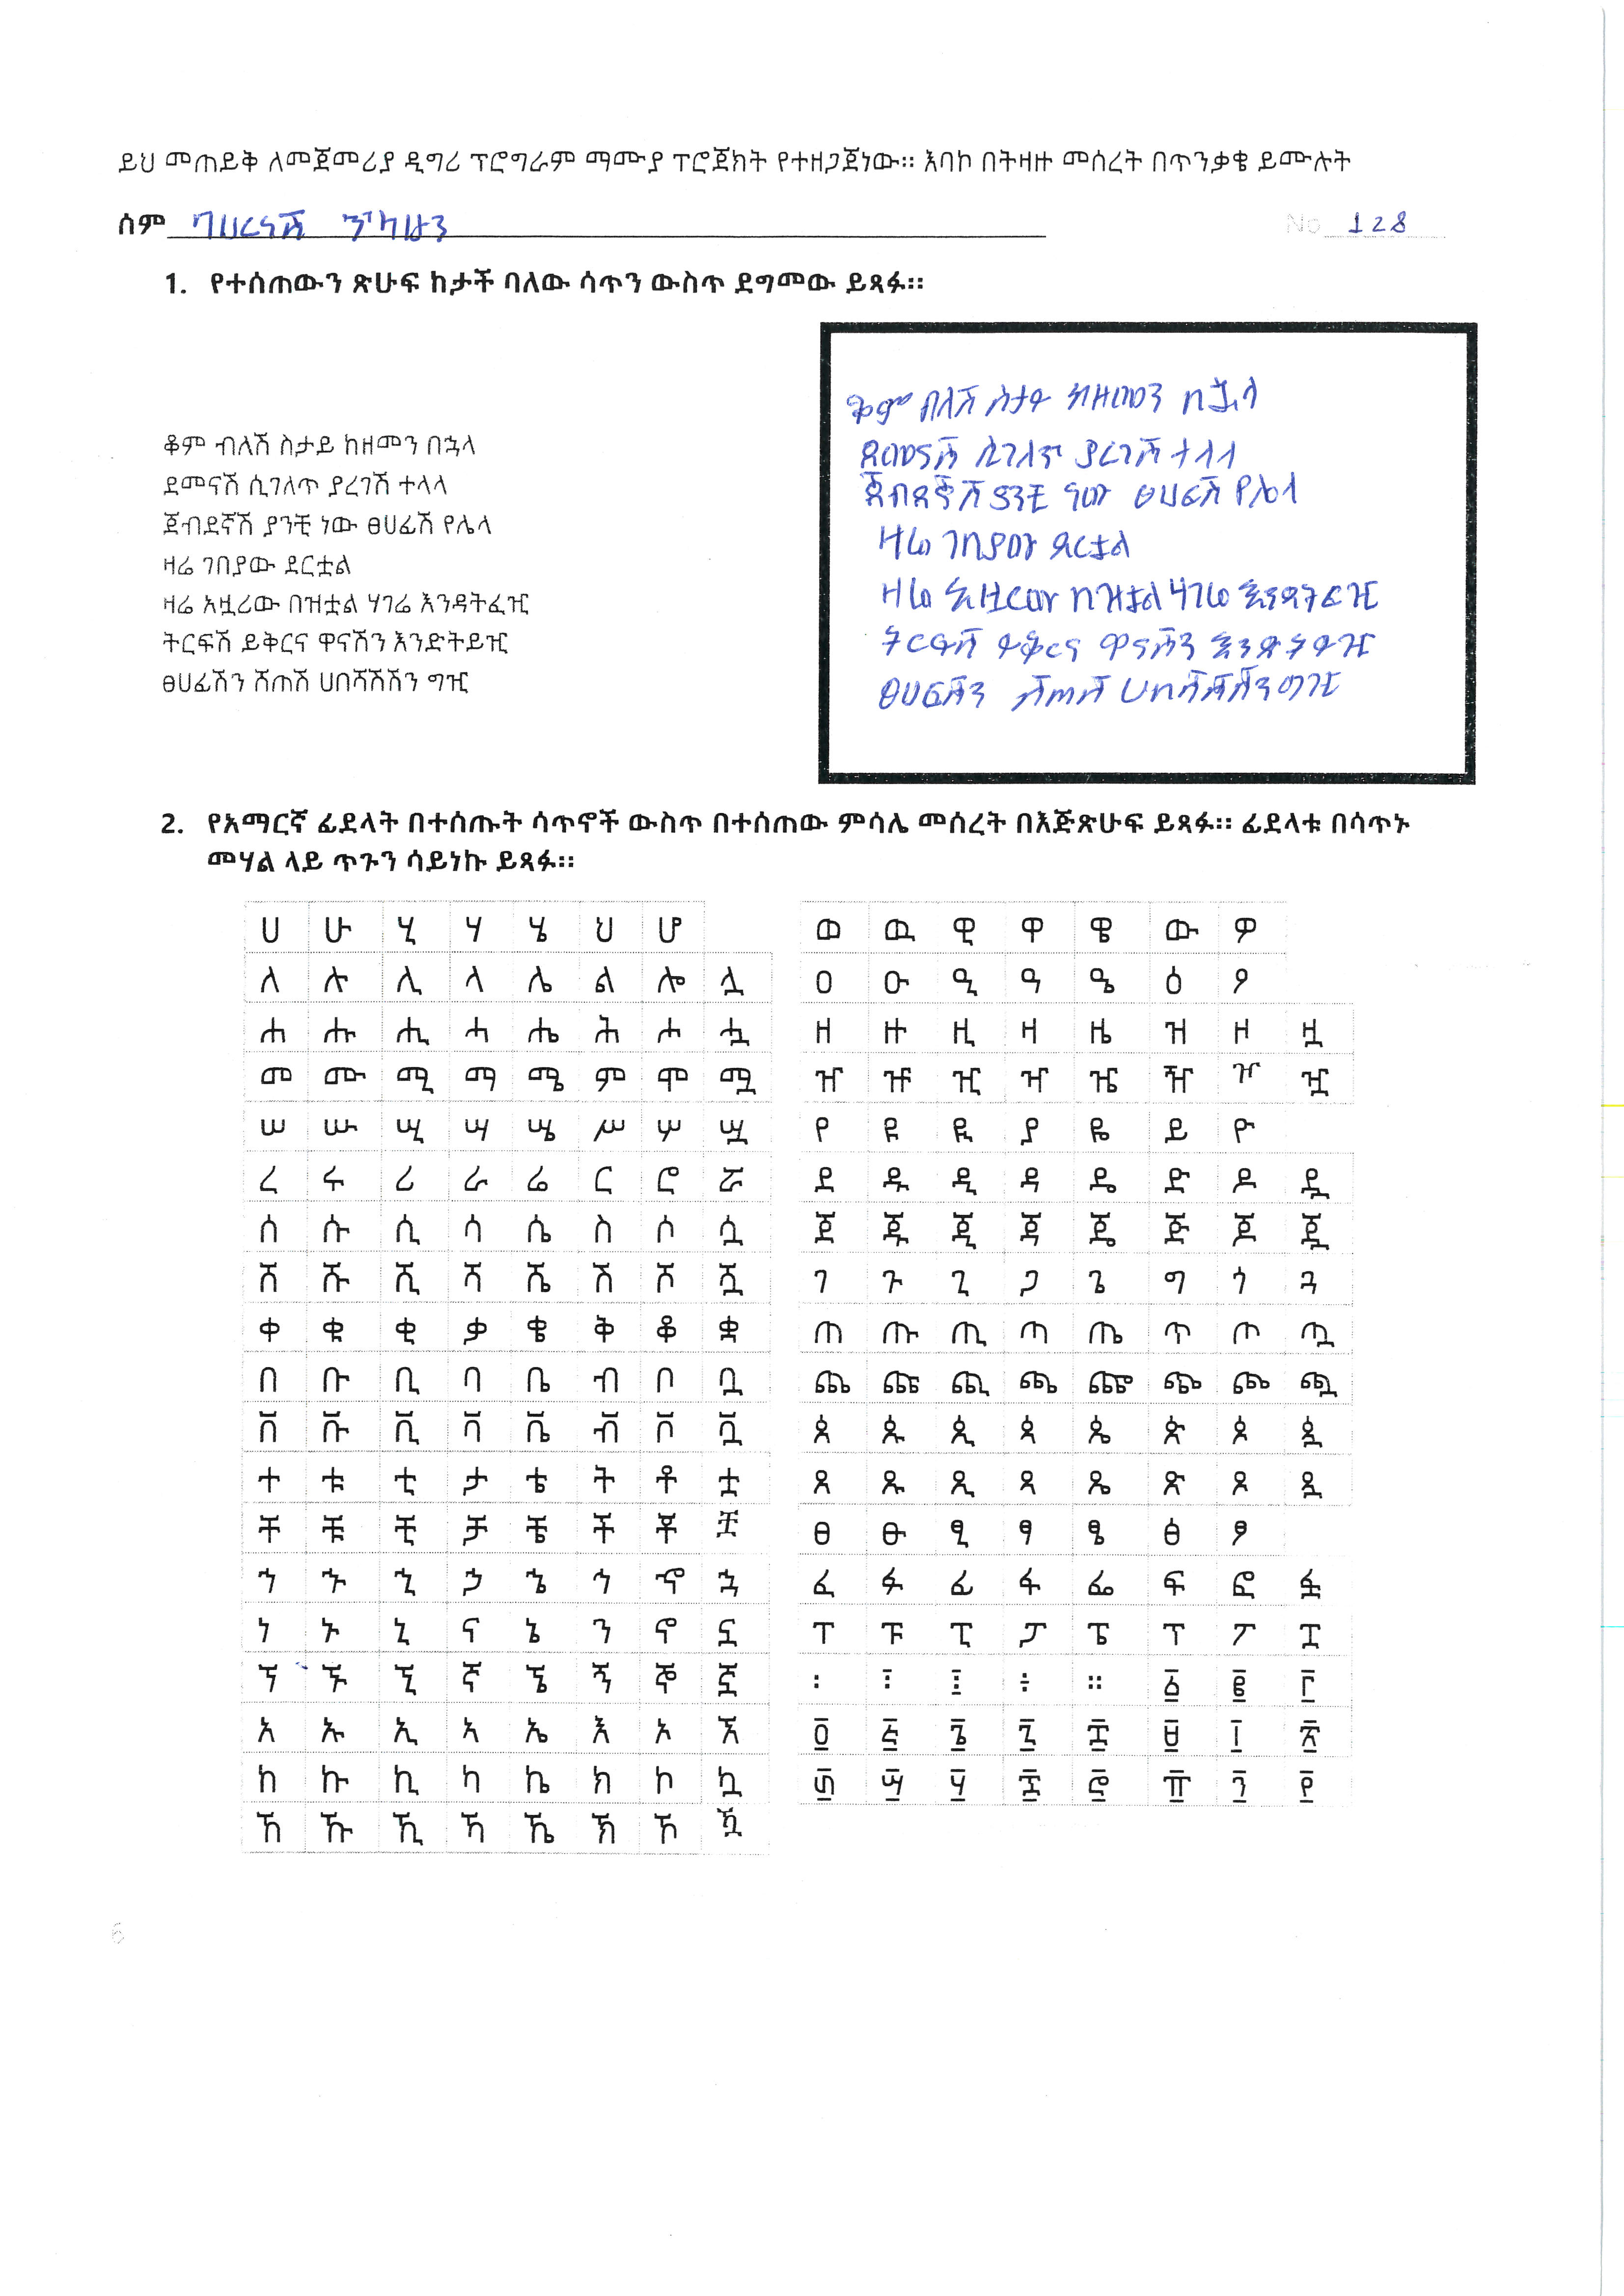 ይህ መጠይቅ ለመጀመሪያ ዲግሪ ፕሮግራም ማሙያ ፕሮጀክት የተዘጋጀነው። እባኮ በትዛዙ መሰረት በጥንቃቄ ይሙሉት
ስም ባህረነሽ No 128
1. የተሰጠውን ጽሁፍ ከታች ባለው ሳጥን ውስጥ ደግመው ይጻፉ።
ቆም ብለሽ ስታይ ከዘመን በኋላ
ደመናሽ ሲገለጥ ያረገሽ ተላላ
ጀብደኛሽ ያንቺ ነው ፀሀፊሽ የሌላ
ዛሬ ገበያው ደርቷል
ዛሬ አዟሪው በዝቷል ሃገሬ እንዳትፈዢ
ትርፍሽ ይቅርና ዋናሽን እንድትይዢ
ፀሀፊሽን ሸጠሽ ሀበሻሽሽን ግዢ
ቆም ብለሽ ስታይ ከዘመን በኋላ
ደመናሽ ሲገለጥ ያረገሽ ተላላ
ጀብደኛሽ ያንቺ ነው ፀሀፊሽ የሌላ
ዛሬ ገበያው ደርቷል
ዛሬ አዟሪው በዝቷል ሃገሬ እንዳትፈዢ
ትርፍሽ ይቅርና ዋናሽን እንድትይዢ
ፀሀፊሽን ሸጠሽ ሀበሻሽሽን ግዢ
2. የአማርኛ ፊደላት በተሰጡት ሳጥኖች ውስጥ በተሰጠው ምሳሌ መሰረት በእጅጽሁፍ ይጻፉ። ፊደላቱ በሳጥኑ
መሃል ላይ ጥጉን ሳይነኩ ይጻፉ።
ሀ ሁ ሂ ሃ ሄ ህ ሆ
ለ ሉ ሊ ላ ሌ ል ሎ ሏ
ሐ ሑ ሒ ሓ ሔ ሕ ሖ ሗ
መ ሙ ሚ ማ ሜ ም ሞ ሟ
ሠ ሡ ሢ ሣ ሤ ሥ ሦ ሧ
ረ ሩ ሪ ራ ሬ ር ሮ ሯ
ሰ ሱ ሲ ሳ ሴ ስ ሶ ሷ
ሸ ሹ ሺ ሻ ሼ ሽ ሾ ሿ
ቀ ቁ ቂ ቃ ቄ ቅ ቆ ቋ
በ ቡ ቢ ባ ቤ ብ ቦ ቧ
ቨ ቩ ቪ ቫ ቬ ቭ ቮ ቯ
ተ ቱ ቲ ታ ቴ ት ቶ ቷ
ቸ ቹ ቺ ቻ ቼ ች ቾ ቿ
ኀ ኁ ኂ ኃ ኄ ኅ ኆ ኋ
ነ ኑ ኒ ና ኔ ን ኖ ኗ
ኘ ኙ ኚ ኛ ኜ ኝ ኞ ኟ
አ ኡ ኢ ኣ ኤ እ ኦ ኧ
ከ ኩ ኪ ካ ኬ ክ ኮ ኳ
ኸ ኹ ኺ ኻ ኼ ኽ ኾ ዃ
ወ ዉ ዊ ዋ ዌ ው ዎ
ዐ ዑ ዒ ዓ ዔ ዕ ዖ
ዘ ዙ ዚ ዛ ዜ ዝ ዞ ዟ
ዠ ዡ ዢ ዣ ዤ ዥ ዦ ዧ
የ ዩ ዪ ያ ዬ ይ ዮ
ደ ዱ ዲ ዳ ዴ ድ ዶ ዷ
ጀ ጁ ጂ ጃ ጄ ጅ ጆ ጇ
ገ ጉ ጊ ጋ ጌ ግ ጎ ጓ
ጠ ጡ ጢ ጣ ጤ ጥ ጦ ጧ
ጨ ጩ ጪ ጫ ጬ ጭ ጮ ጯ
ጰ ጱ ጲ ጳ ጴ ጵ ጶ ጷ
ጸ ጹ ጺ ጻ ጼ ጽ ጾ ጿ
ፀ ፁ ፂ ፃ ፄ ፅ ፆ
ፈ ፉ ፊ ፋ ፌ ፍ ፎ ፏ
ፐ ፑ ፒ ፓ ፔ ፕ ፖ ፗ
፡ ፤ ፧ ÷ ። ፩ ፪ ፫
፬ ፭ ፮ ፯ ፰ ፱ ፲ ፳
፴ ፵ ፶ ፷ ፸ ፹ ፺ ፻
6